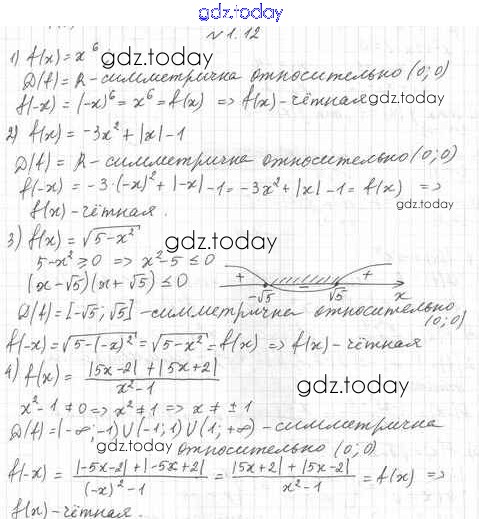 gdz.today
№ 1.12
1) f(x) = x⁶
gdz.today
D(f) = R - симметрична относительно (0; 0)
f(-x) = (-x)⁶ = x⁶ = f(x) => f(x) - чётная gdz.today
2) f(x) = -3x² + |x| - 1
D(f) = R - симметрична относительно (0; 0)
f(-x) = -3·(-x)² + |-x| - 1 = -3x² + |x| - 1 = f(x) =>
gdz.today
f(x) - чётная.
3) f(x) = √5-x² gdz.today
5-x² ≥ 0 => x² - 5 ≤ 0
(x - √5)(x + √5) ≤ 0
+ - +
-√5 √5 x
D(f) = [-√5; √5] - симметрична относительно
(0; 0)
f(-x) = √5-(-x)² = √5-x² = f(x) => f(x) - чётная
4) f(x) = |5x-2| + |5x+2| / x² - 1
gdz.today
x² - 1 ≠ 0 => x² ≠ 1 => x ≠ ± 1
D(f) = (-∞; -1) ∪ (-1; 1) ∪ (1; +∞) - симметрична
gdz.today относительно (0; 0)
f(-x) = |-5x-2| + |-5x+2| / (-x)² - 1 = |5x+2| + |5x-2| / x² - 1 = f(x) =>
f(x) - чётная. gdz.today